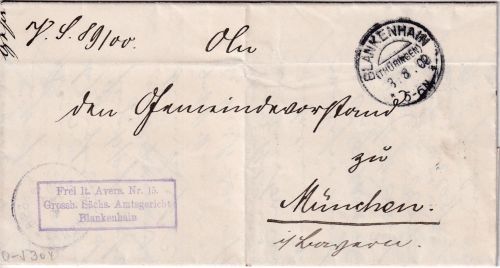 J. S. 89/00.
An
BLANKENHAIN
(THÜRINGEN)
3. 8. 00
5-6N.
den Gemeindevorstand
zu
München.
i/Bayern.
Frei lt. Avers. Nr. 15.
Grossh. Sächs. Amtsgericht
Blankenhain